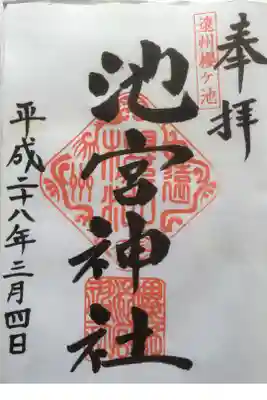 奉拝
遠州櫻ヶ池
池宮神社
平成二十八年三月四日